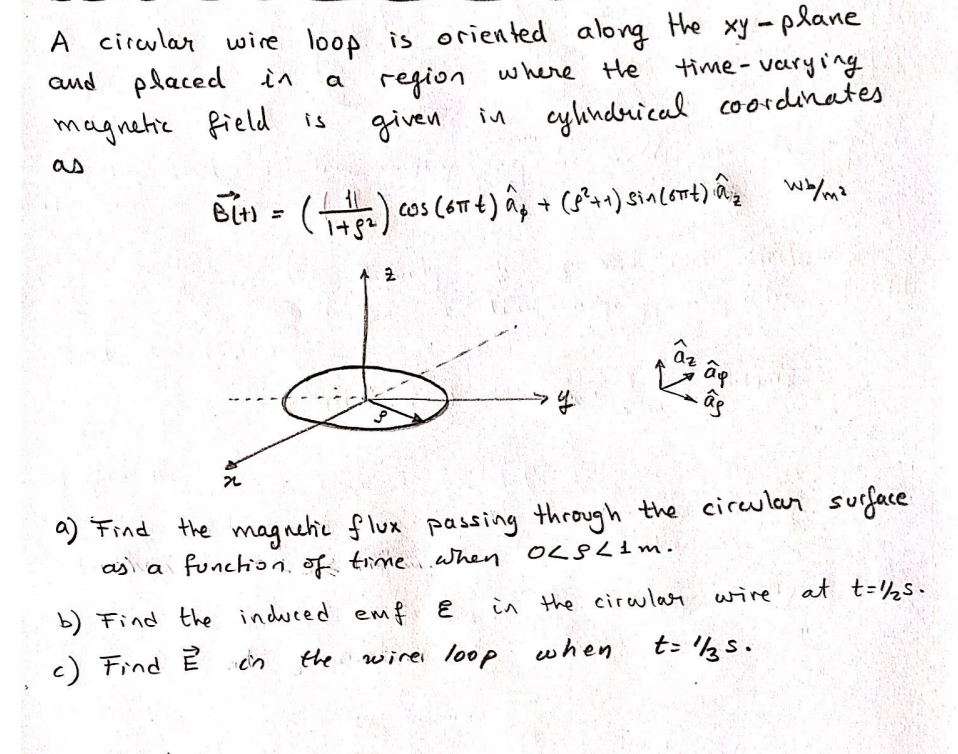 A circular wire loop is oriented along the xy-plane
and placed in a region where the time-varying
magnetic field is given in cylindrical coordinates
as
B⃗(t) = (11/(1+ρ²)) cos(6πt) âφ + (ρ²+1) sin(6πt) âz Wb/m²
z
âz
âφ
y
ρ
âρ
x
a) Find the magnetic flux passing through the circular surface
as a function of time when 0<ρ<1m.
b) Find the induced emf ε in the circular wire at t=1/2s.
c) Find E⃗ in the wire loop when t=1/3 s.